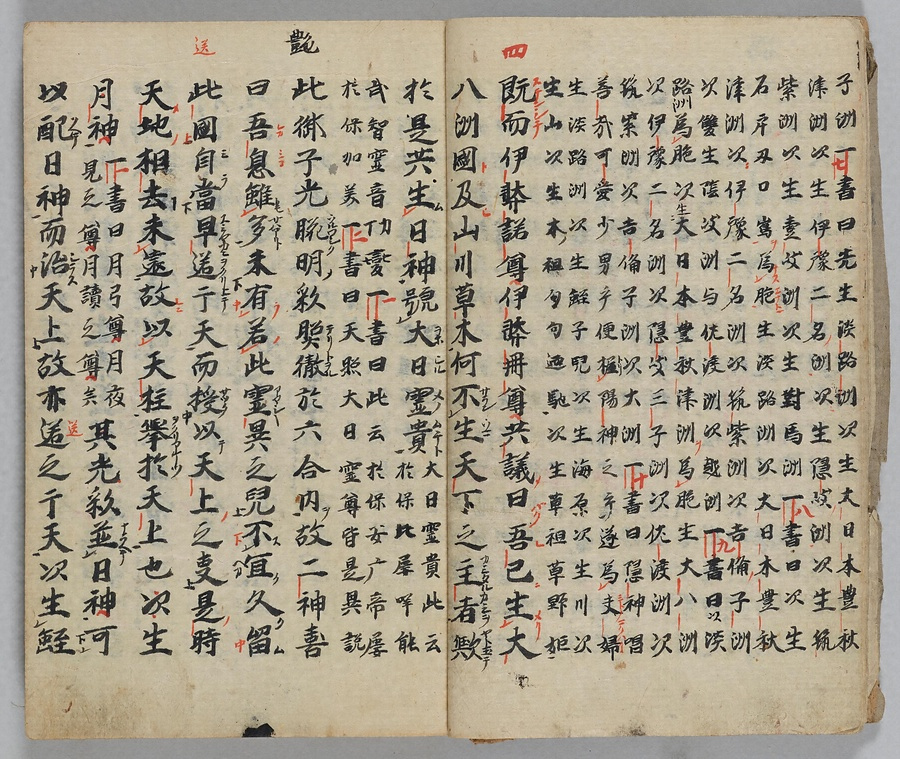 四
子洲一書曰先生淡路洲次生大日本豊秋
津洲次生伊豫二名洲次生隠岐洲次生筑
紫洲次生壹岐洲次生對馬洲一書曰次生
石戸刃口嶌為胞生淡路洲次大日本豊秋
津洲次伊豫二名洲次筑紫洲次吉備子洲
次雙生隠岐洲与佐渡洲次越洲一書曰以淡
路洲為胞次生大日本豊秋津洲為胞生大八洲
次伊豫二名洲次隠岐三子洲次佐渡洲次
筑紫洲次吉備子洲次大洲一書曰隠神唱
善哉可愛少男乎便極陽神之手遂為夫婦
生淡路洲次生蛭子兒次生海原次生川次
生山次生木祖句句廼馳次生草祖草野姫
既而伊弉諾尊伊弉冊尊共議曰吾已生大
八洲國及山川草木何不生天下之主者歟
於是共生日神號大日孁貴大日孁貴此云
於保比屢咩能
武智孁音力丁反一書曰此云於保安广帝屢
於保加美一書曰天照大日孁尊皆是異説
艶
此御子光脱明彩照徹於六合内故二神喜
曰吾息雖多未有若此靈異之兒不宜久留
送
此國自當早送于天而授以天上之叓是時
天地相去未遠故以天柱擧於天上也次生
月神一書曰月弓尊月夜
見之尊月讀之尊矣
其光彩並日神可
以配日神而治天上故亦送之于天次生蛭